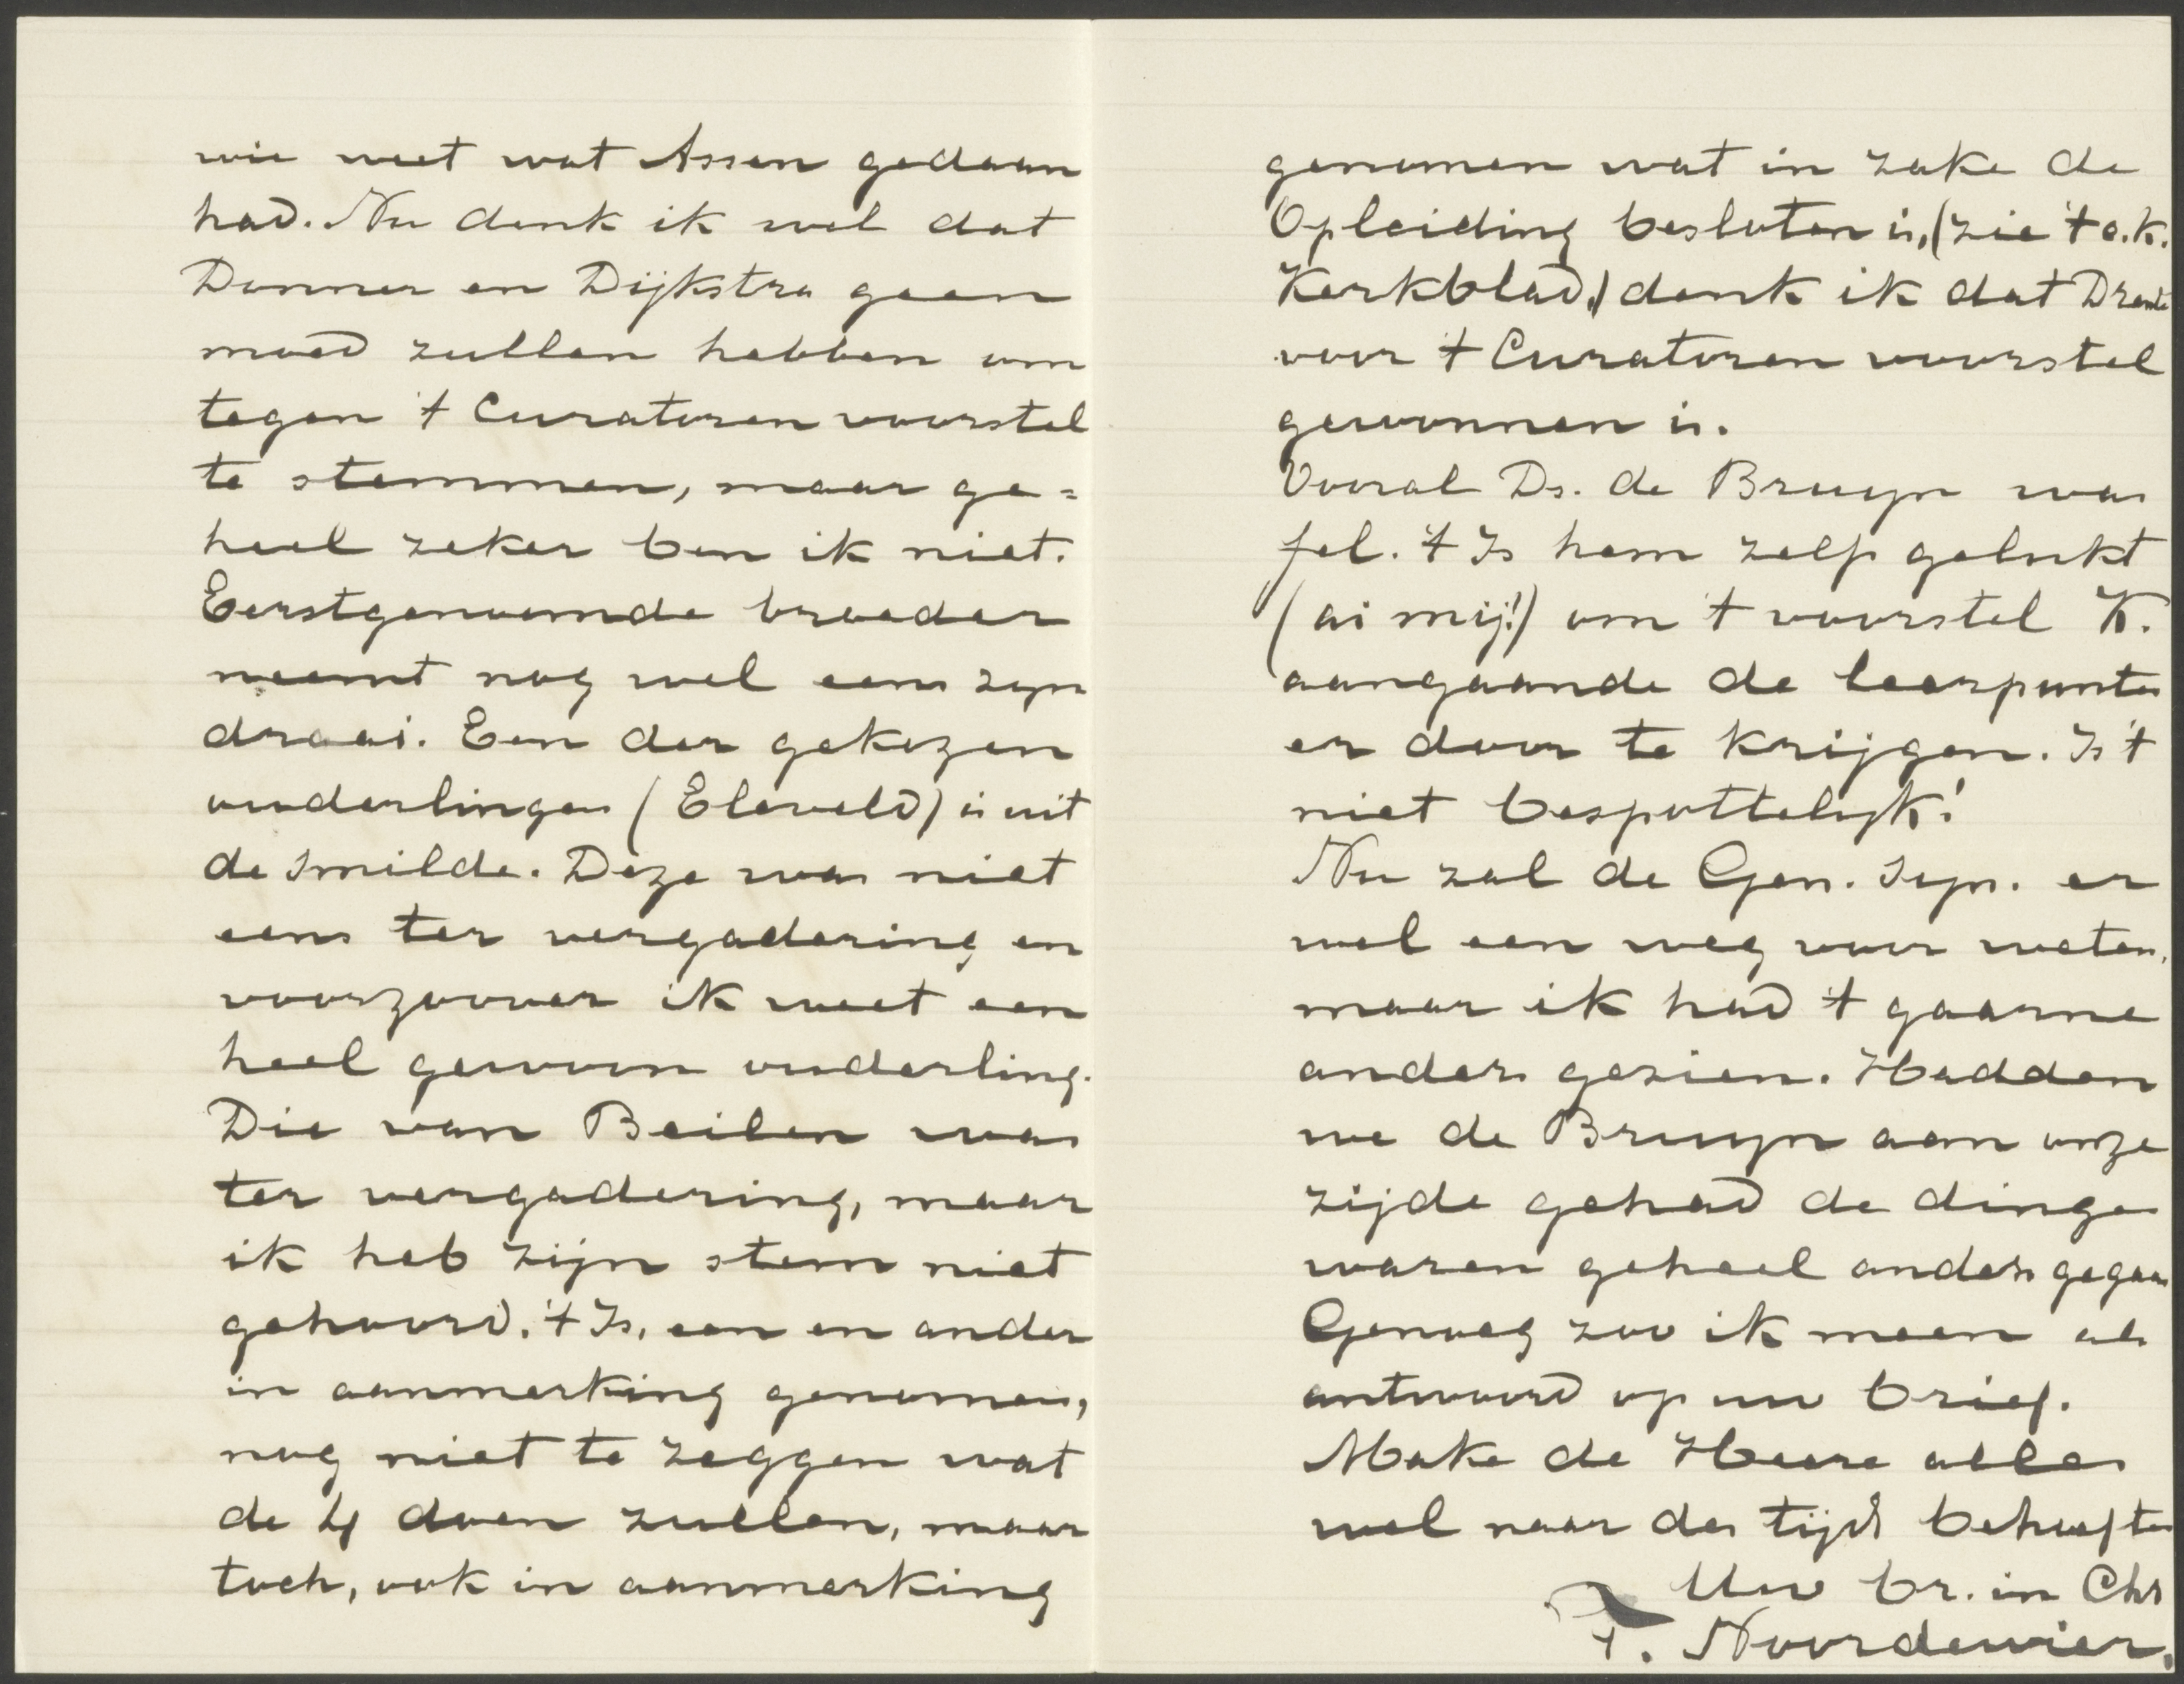 wie weet wat Assen gedaan
had. Nu denk ik wel dat
Donner en Dijkstra geen
moed zullen hebben om
tegen 't Curatoren voorstel
te stemmen, maar ge=
heel zeker ben ik niet.
Eerstgenoemde broeder
neemt nog wel eens zyn
draai. Een der gekozen
ouderlingen (Eleveld) is uit
de Smilde. Deze was niet
eens ter vergadering en
voorzoover ik weet een
heel gewoon ouderling.
Die van Beilen was
ter vergadering, maar
ik heb zijn stem niet
gehoord. 't Is, een en ander
in aanmerking genomen,
nog niet te zeggen wat
de 4 doen zullen, maar
toch, ook in aanmerking
genomen wat in zake de
Opleiding besloten is, (zie 't o.k.
Kerkblad,) denk ik dat Drente
voor 't Curatoren voorstel
gewonnen is.
Vooral Ds. de Bruyn was
fel. 't Is hem zelfs gelukt
(ai mij!) om 't voorstel K.
aangaande de leerpunten
er door te krijgen. Is 't
niet bespottelyk!
Nu zal de Gen. Syn. er
wel een weg voor weten,
maar ik had 't gaarne
anders gezien. Hadden
we de Bruyn aan onze
zijde gehad de dingen
waren geheel anders gegaan
Genoeg zoo ik meen als
antwoord op uw brief.
Make de Heere alles
wel naar des tijds behoeften
Uw br. in Chr
T. Noordewier.